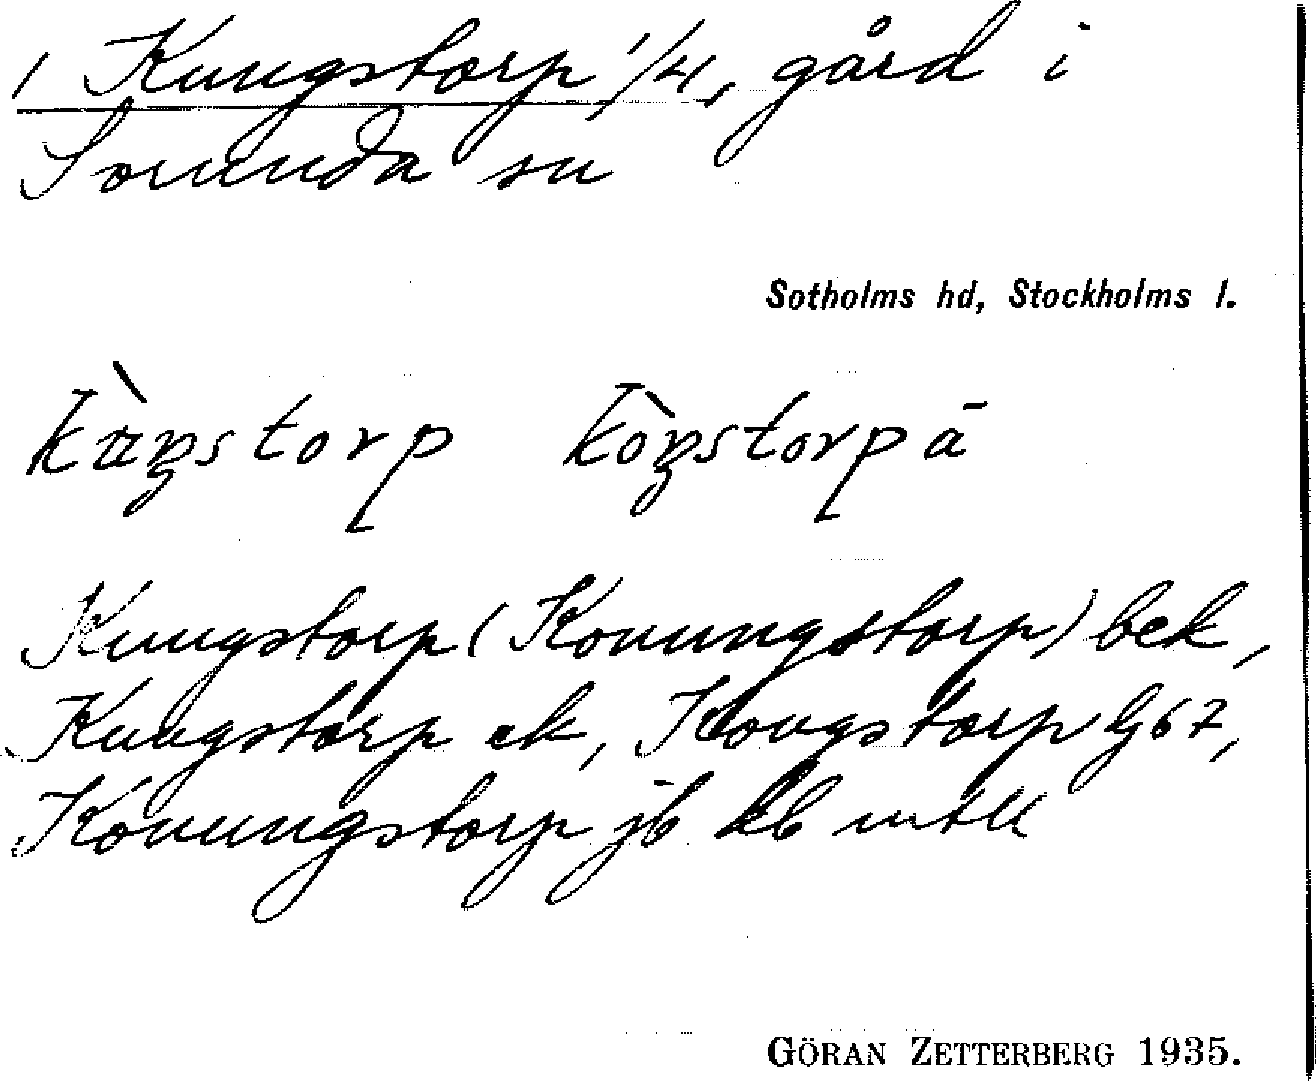 1 Kungstorp 1/4, gård i
Sorunda sn
Sotholms hd, Stockholms l.
Kungstorp (Konungstorp) bek,
Kungstorp ek, Kongstorp Gj67,
Konungstorp jb kb mtll
GÖRAN ZETTERBERG 1935.